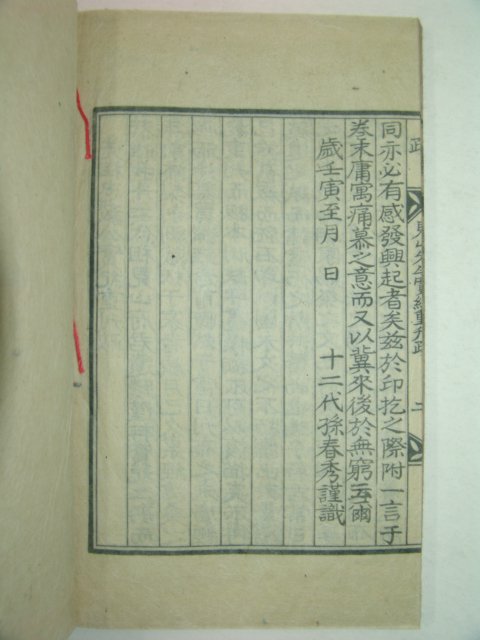 跋
先公實紀重刊跋 二
同亦必有感發興起者矣玆於印訖之際附一言于
卷末庸寓痛慕之意而又以冀來後於無窮云爾
歲壬寅至月 日 十二代孫春秀謹識